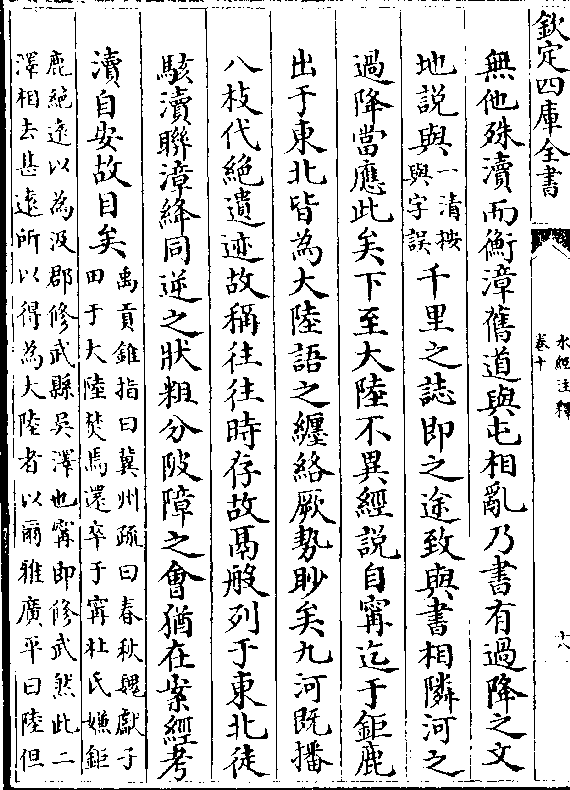 欽定四庫全書
水經注釋
卷十
十八
無他殊瀆而衡漳舊道與屯相亂乃書有過降之文
地説與一清按與字誤千里之誌即之途致與書相隣河之
過降當應此矣下至大陸不異經説自甯迄于鉅鹿
出于東北皆為大陸語之纒絡厥勢眇矣九河既播
八枝代絶遺迹故稱往往時存故鬲般列于東北徒
駭瀆聯漳絳同逆之狀粗分陂障之會猶在案經考
瀆自安故目矣
禹貢錐指曰冀州疏曰春秋魏獻子
田于大陸焚焉還卒于甯杜氏嫌鉅
鹿絶遠以為汲郡修武縣吴澤也甯即修武然此二
澤相去甚遠所以得為大陸者以爾雅廣平曰陸但